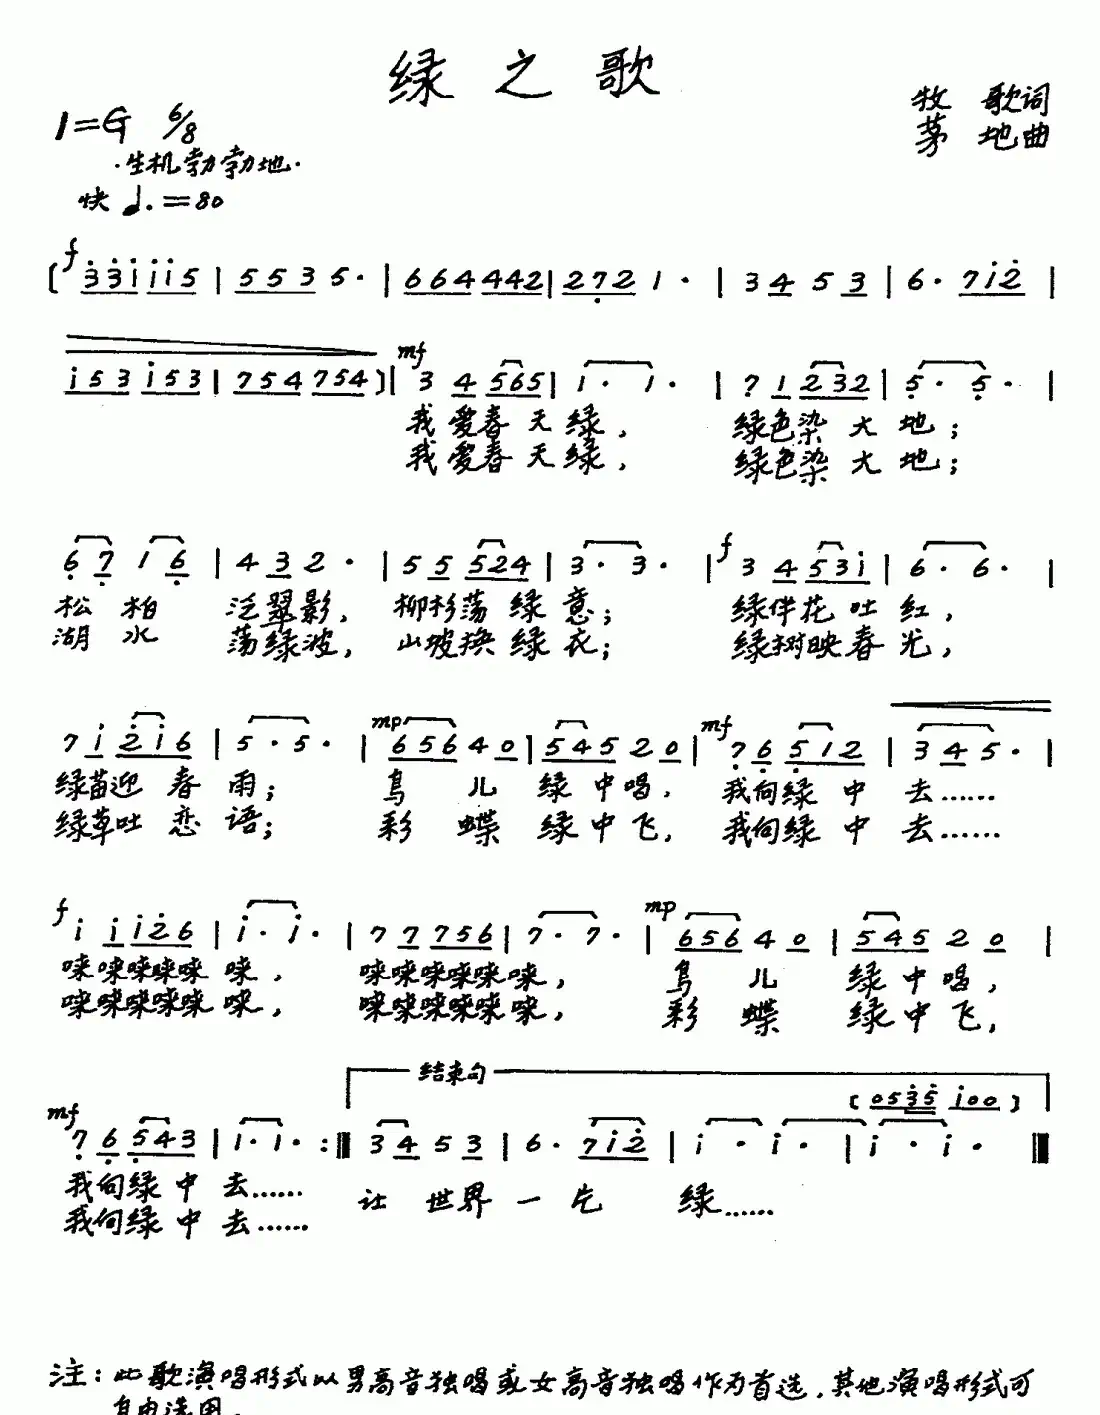 绿之歌
牧 歌词
茅 地曲
1=G 6/8
·生机勃勃地·
快 ♩.=80
f
( 3̇3̇1̇ 1̇1̇5 | 553 5· | 664 442 | 27̣2 1· | 3 4 5 3 | 6· 71̇2̇ |
mf
1̇53 1̇53 | 754 754 ) | 3 4 565 | 1· 1· | 7̣ 1 232 | 5̣· 5̣· |
我爱春天绿, 绿色染大地;
我爱春天绿, 绿色染大地;
f
6̣ 7̣ 1 6̣ | 4 3 2· | 5 5 524 | 3· 3· | 3 4 531̇ | 6· 6· |
松柏 泛翠影, 柳杉荡绿意; 绿伴花吐红,
湖水 荡绿波, 山坡换绿衣; 绿树映春光,
mp mf
7 1̇ 2̇1̇6 | 5· 5· | 656 4 0 | 545 2 0 | 7̣ 6̣ 5̣12 | 3 4 5· |
绿苗迎春雨; 鸟儿绿中唱, 我向绿中去……
绿草吐恋语; 彩蝶绿中飞, 我向绿中去……
f mp
1̇ 1̇ 1̇2̇6 | 1̇· 1̇· | 7 7 756 | 7· 7· | 656 4 0 | 545 2 0 |
唻唻唻唻唻唻, 唻唻唻唻唻唻, 鸟儿绿中唱,
唻唻唻唻唻唻, 唻唻唻唻唻唻, 彩蝶绿中飞,
结束句
( 053̇5̇ 1̇00 )
mf
7̣ 6̣ 5̣43 | 1· 1· :‖ 3 4 5 3 | 6· 71̇2̇ | 1̇· 1̇· | 1̇· 1̇· ‖
我向绿中去…… 让世界一片绿……
我向绿中去……
注: 此歌演唱形式以男高音独唱或女高音独唱作为首选,其他演唱形式可
自由选用.